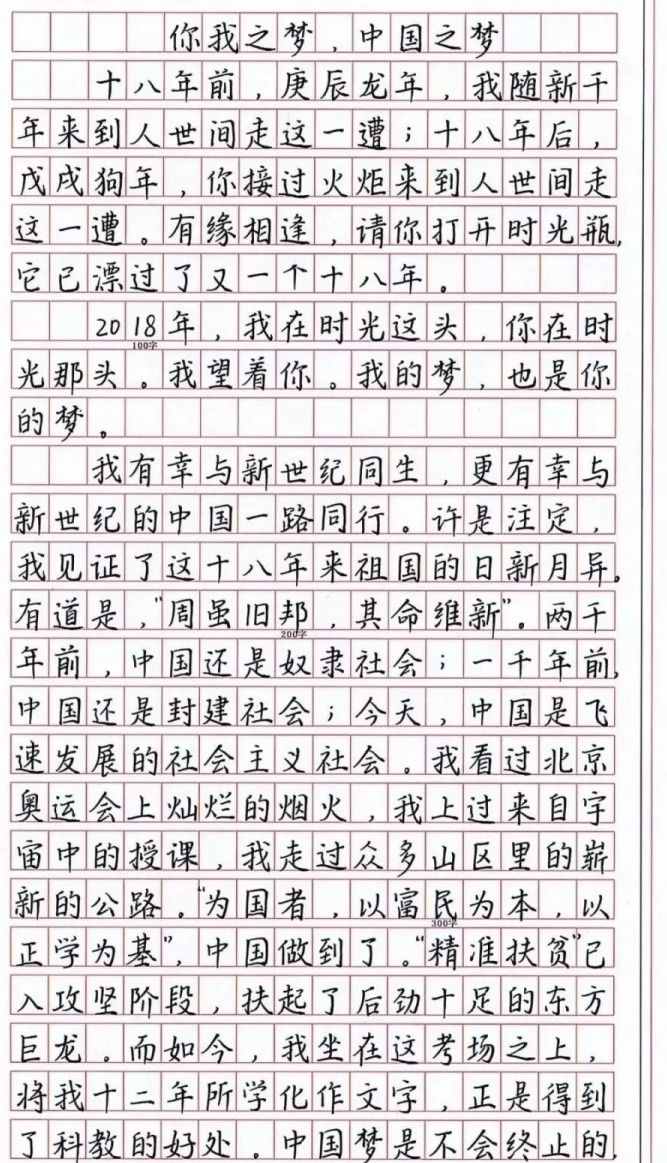 你我之梦，中国之梦
十八年前，庚辰龙年，我随新千
年来到人世间走这一遭；十八年后，
戊戌狗年，你接过火炬来到人世间走
这一遭。有缘相逢，请你打开时光瓶，
它已漂过了又一个十八年。
2018年，我在时光这头，你在时
100字
光那头。我望着你。我的梦，也是你
的梦。
我有幸与新世纪同生，更有幸与
新世纪的中国一路同行。许是注定，
我见证了这十八年来祖国的日新月异。
有道是，“周虽旧邦，其命维新”。两千
200字
年前，中国还是奴隶社会；一千年前，
中国还是封建社会；今天，中国是飞
速发展的社会主义社会。我看过北京
奥运会上灿烂的烟火，我上过来自宇
宙中的授课，我走过众多山区里的崭
新的公路。“为国者，以富民为本，以
300字
正学为基”，中国做到了。“精准扶贫”已
入攻坚阶段，扶起了后劲十足的东方
巨龙。而如今，我坐在这考场之上，
将我十二年所学化作文字，正是得到
了科教的好处。中国梦是不会终止的，